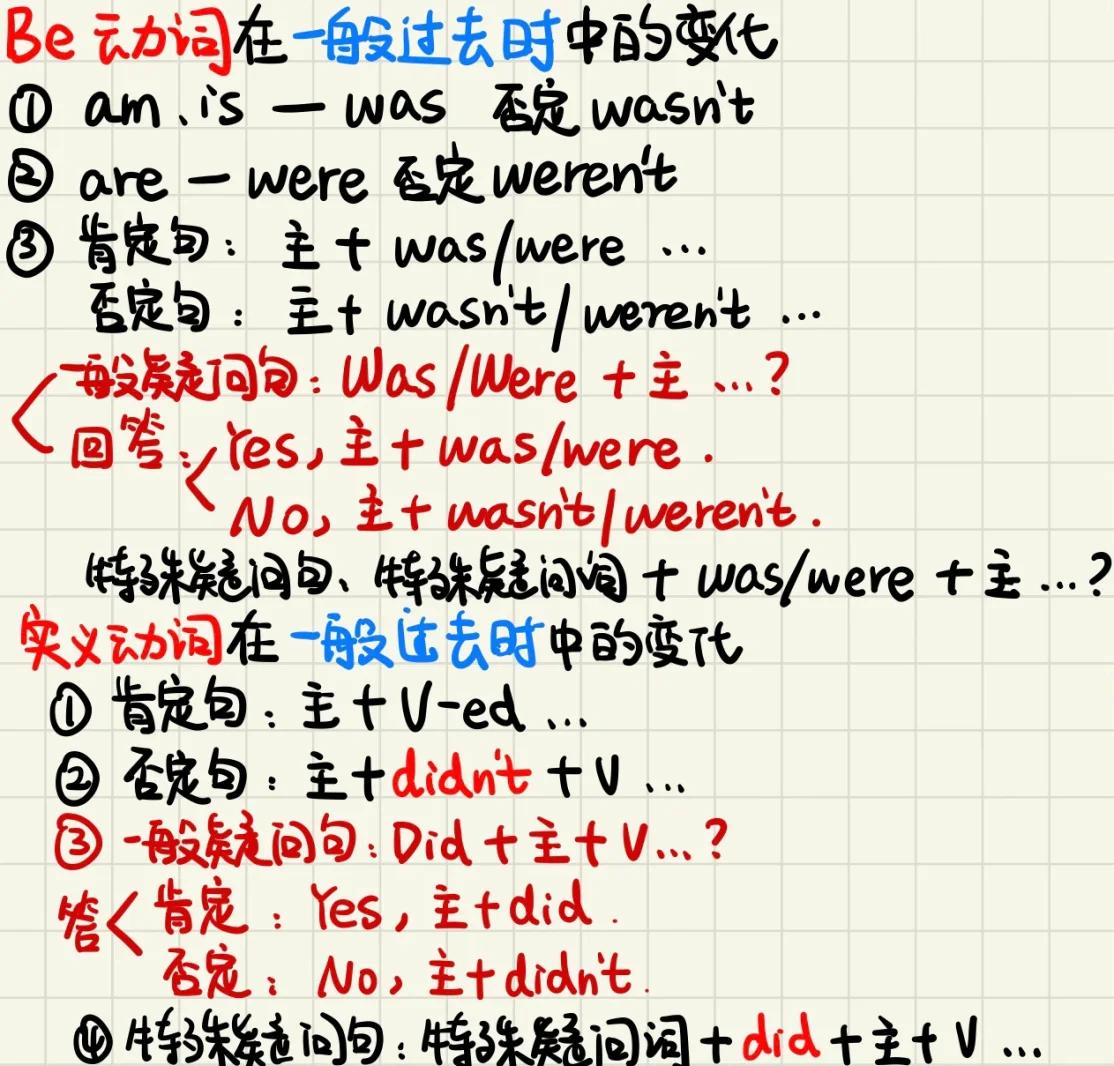 Be动词在一般过去时中的变化
① am、is — was 否定 wasn't
② are — were 否定 weren't
③ 肯定句：主 + was/were ...
否定句：主 + wasn't/weren't ...
一般疑问句：Was/Were + 主 ...?
回答：Yes, 主 + was/were.
No, 主 + wasn't/weren't.
特殊疑问句、特殊疑问词 + was/were + 主 ...?
实义动词在一般过去时中的变化
① 肯定句：主 + V-ed ...
② 否定句：主 + didn't + V ...
③ 一般疑问句：Did + 主 + V...?
答 肯定：Yes, 主 + did.
否定：No, 主 + didn't.
④ 特殊疑问句：特殊疑问词 + did + 主 + V ...